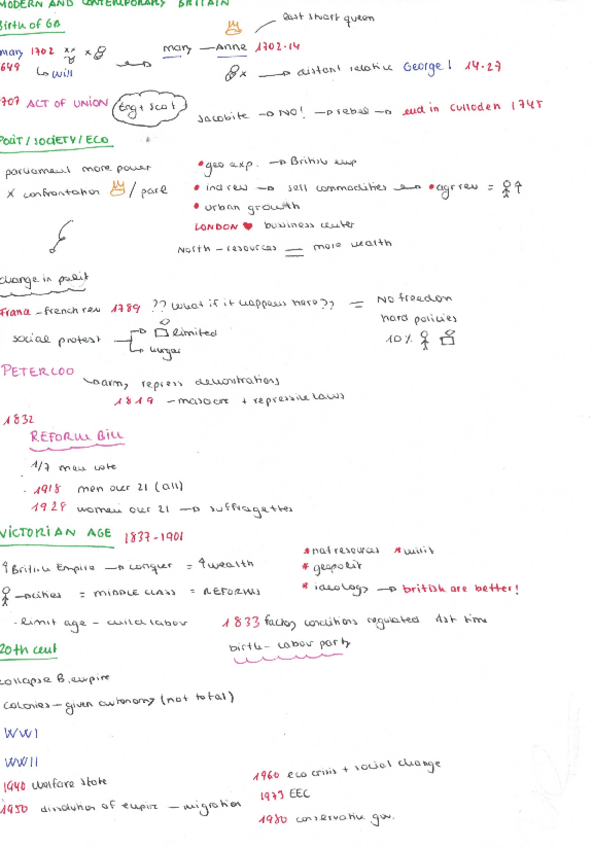 MODERN AND CONTEMPORARY BRITAIN
Birth of GB
last stuart queen
mary 1702
mary — Anne 1702-14
1649
Will
distant relative George I 14-27
1707 ACT OF UNION
Eng + Scot
Jacobite → NO! → rebel → end in Culloden 1745
POLIT / SOCIETY / ECO
parliament more power
• geo exp. → British emp
x confrontation / parl
• ind rev → sell commodities • agr rev =
• urban growth
LONDON business center
North - resources = more wealth
change in polit
France - french rev 1789 ?? What if it happens here?? = NO freedom
hard policies
social protest
limited
10%
PETERLOO
army repress demonstrations
1819 - masacre + repressive laws
1832
REFORM BILL
1/7 men vote
• 1918 men over 21 (all)
1928 women over 21 → suffragettes
VICTORIAN AGE 1837-1901
* nat resources * milit
British Empire → conquer = wealth
* geopolit
* ideology → british are better!
→ cities = MIDDLE CLASS = REFORMS
- limit age - child labor
1833 factory conditions regulated 1st time
20th cent
birth - labour party
collapse B. empire
colonies - given autonomy (not total)
WWI
WWII
1940 welfare state
1960 eco crisis + social change
1950 dissolution of empire - migration
1973 EEC
1980 conservative gov.